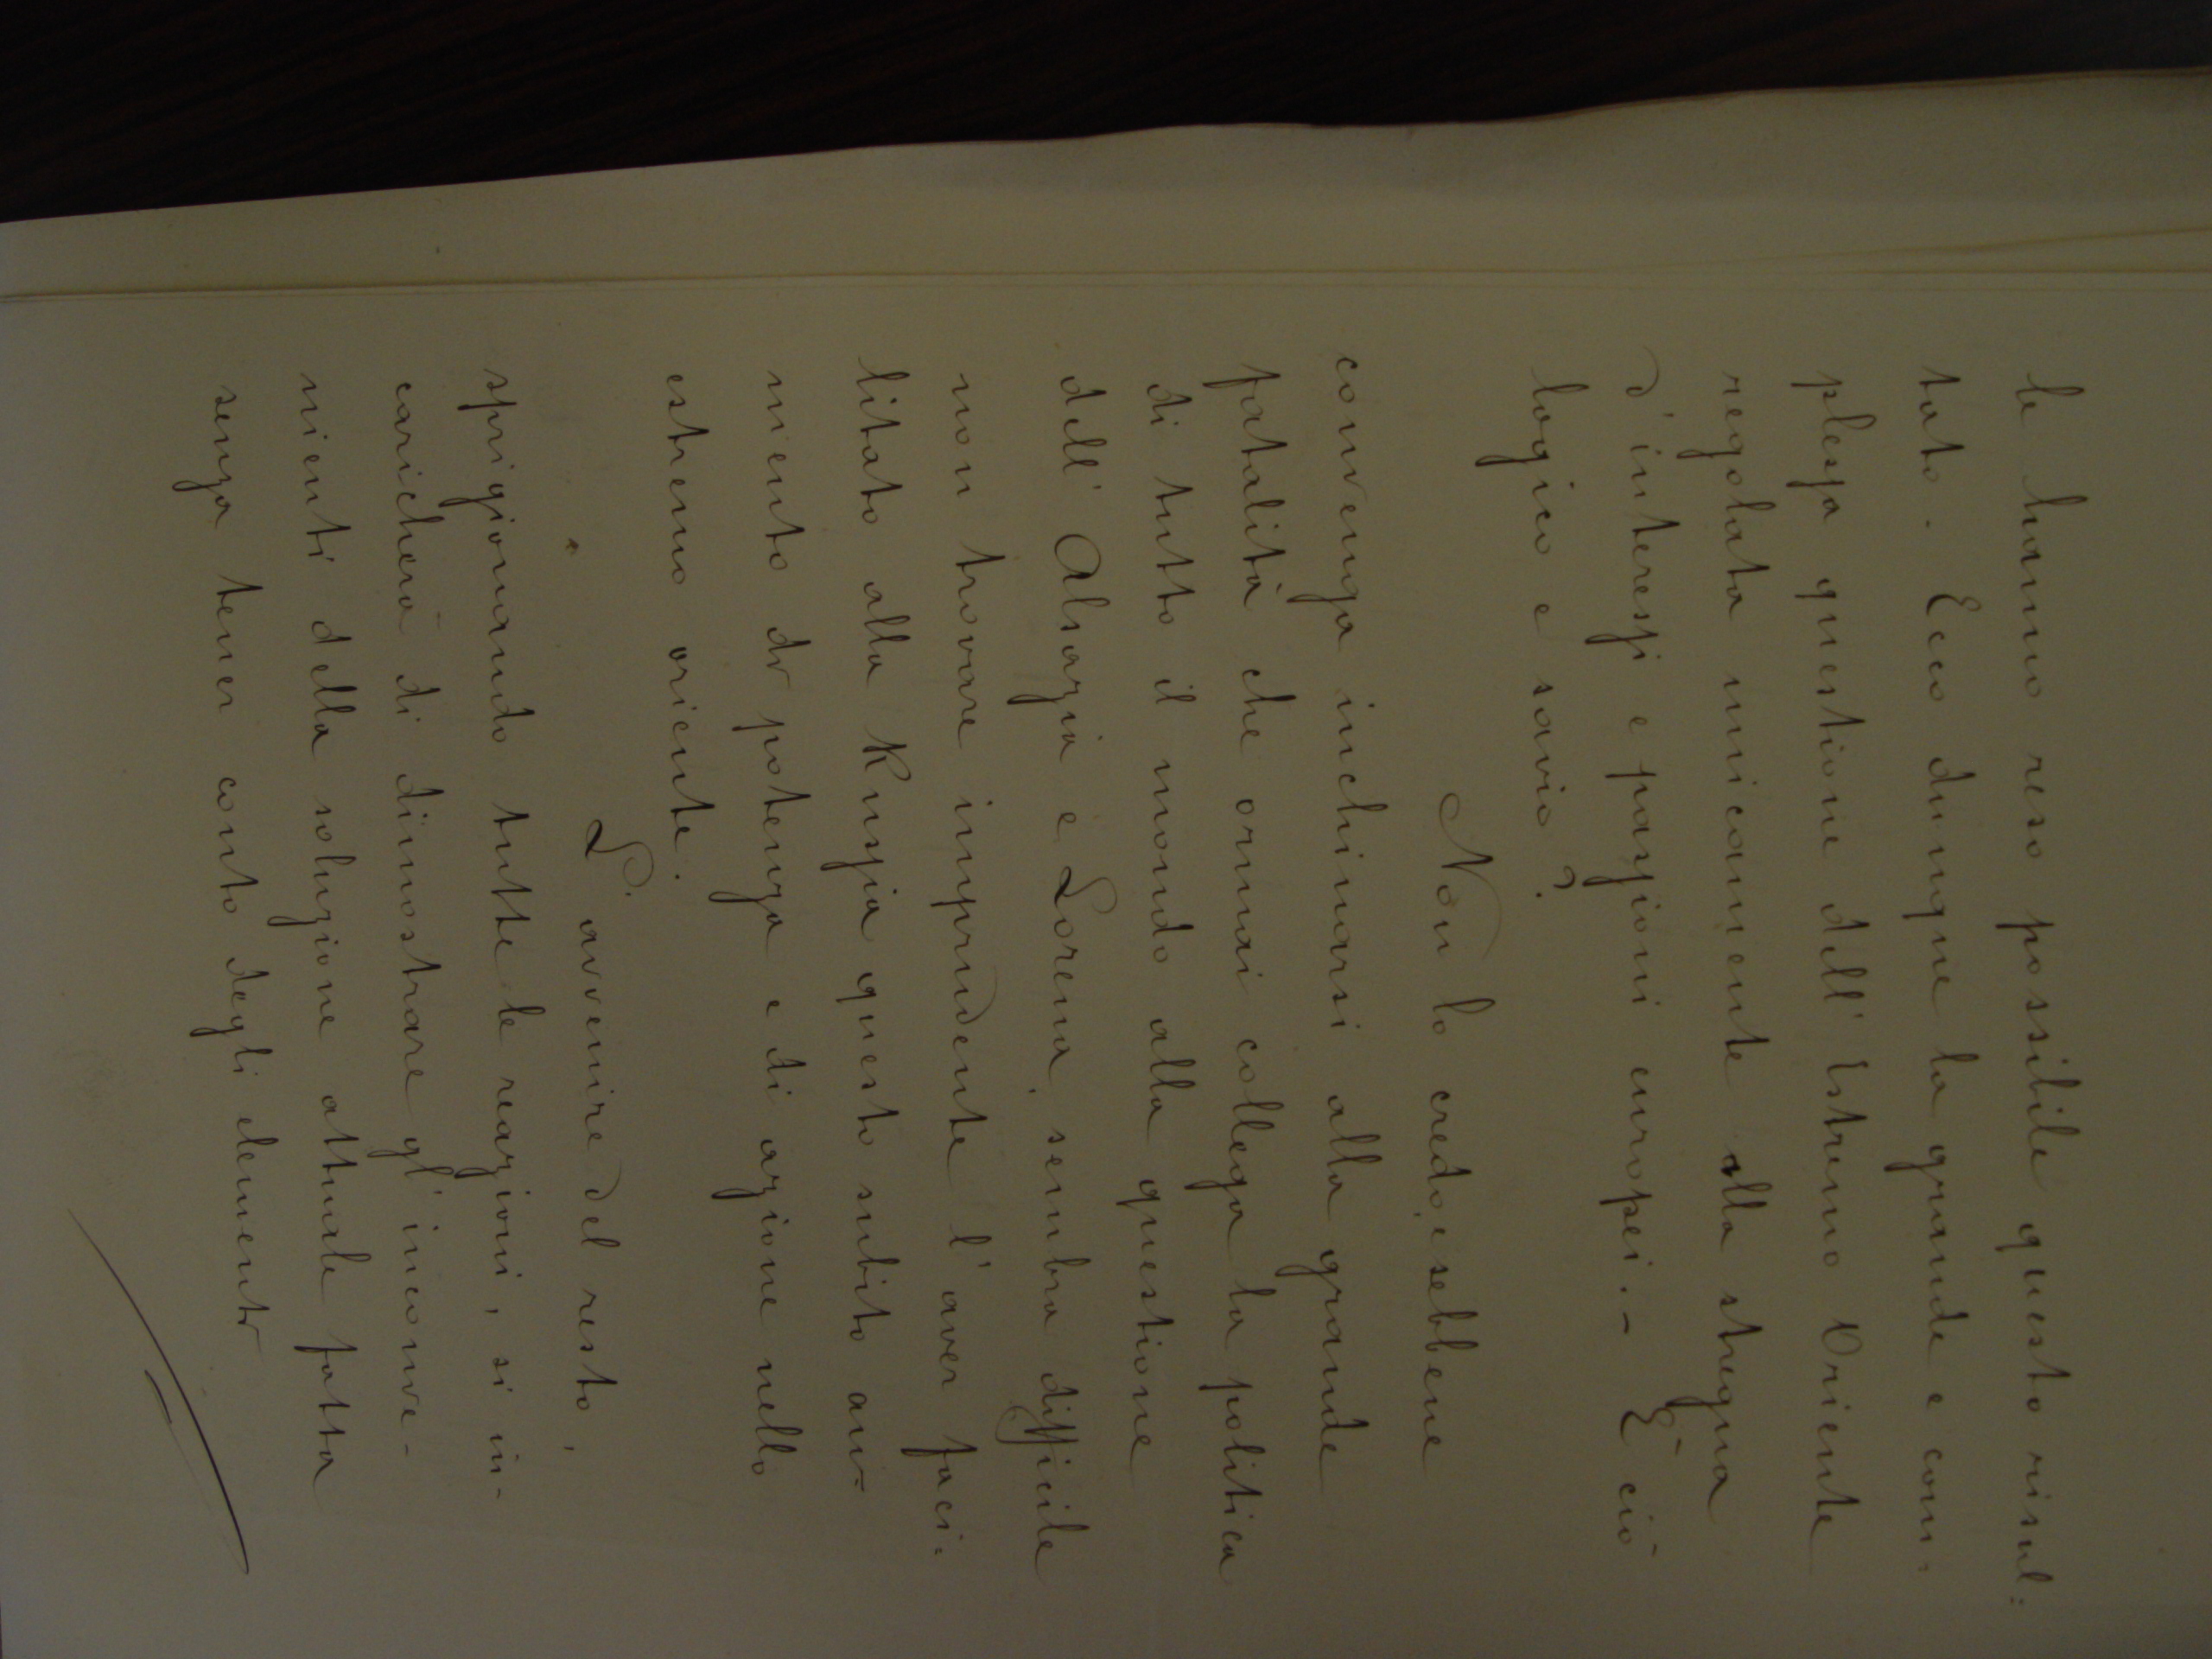 le hanno reso possibile questo risul:
tato. Ecco dunque la grande e com:
plessa questione dell'Estremo Oriente
regolata unicamente alla stregua
d'interessi e passioni europei. - È ciò
logico e savio?
Non lo credo, e sebbene
convenga inchinarsi alla grande
fatalità che ormai collega la politica
di tutto il mondo alla questione
dell'Alsazia e Lorena, sembra difficile
non trovare imprudente l'aver faci:
litato alla Russia questo subito au=
mento di potenza e di azione nello
estremo oriente.
L'avvenire del resto,
sprigionando tutte le reazioni, si in-
caricherà di dimostrare gl'inconve-
nienti della soluzione attuale fatta
senza tener conto degli elementi